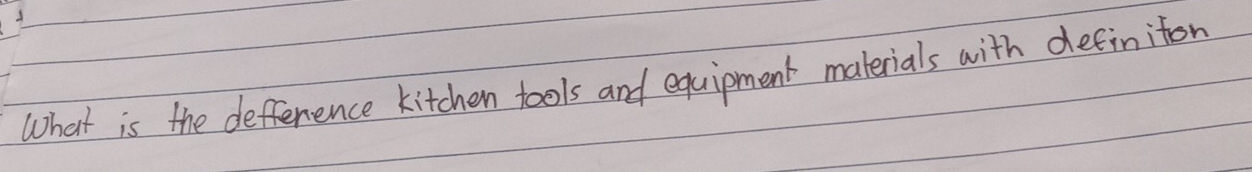 What is the defference kitchen tools and equipment materials with definiton